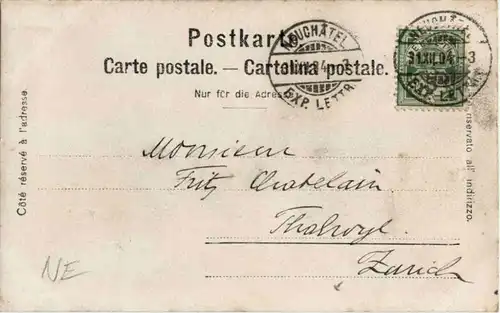 Postkarte
Carte postale. — Cartolina postale.
Nur für die Adresse
NEUCHÂTEL
31.XII.04 - 3
EXP. LETTR.
NEUCHÂTEL
31.XII.04 - 3
EXP. LETTR.
Côté réservé à l'adresse.
Monsieur
Fritz Chatelain
Thalwyl.
Zurich
NE
riservato all' indirizzo.